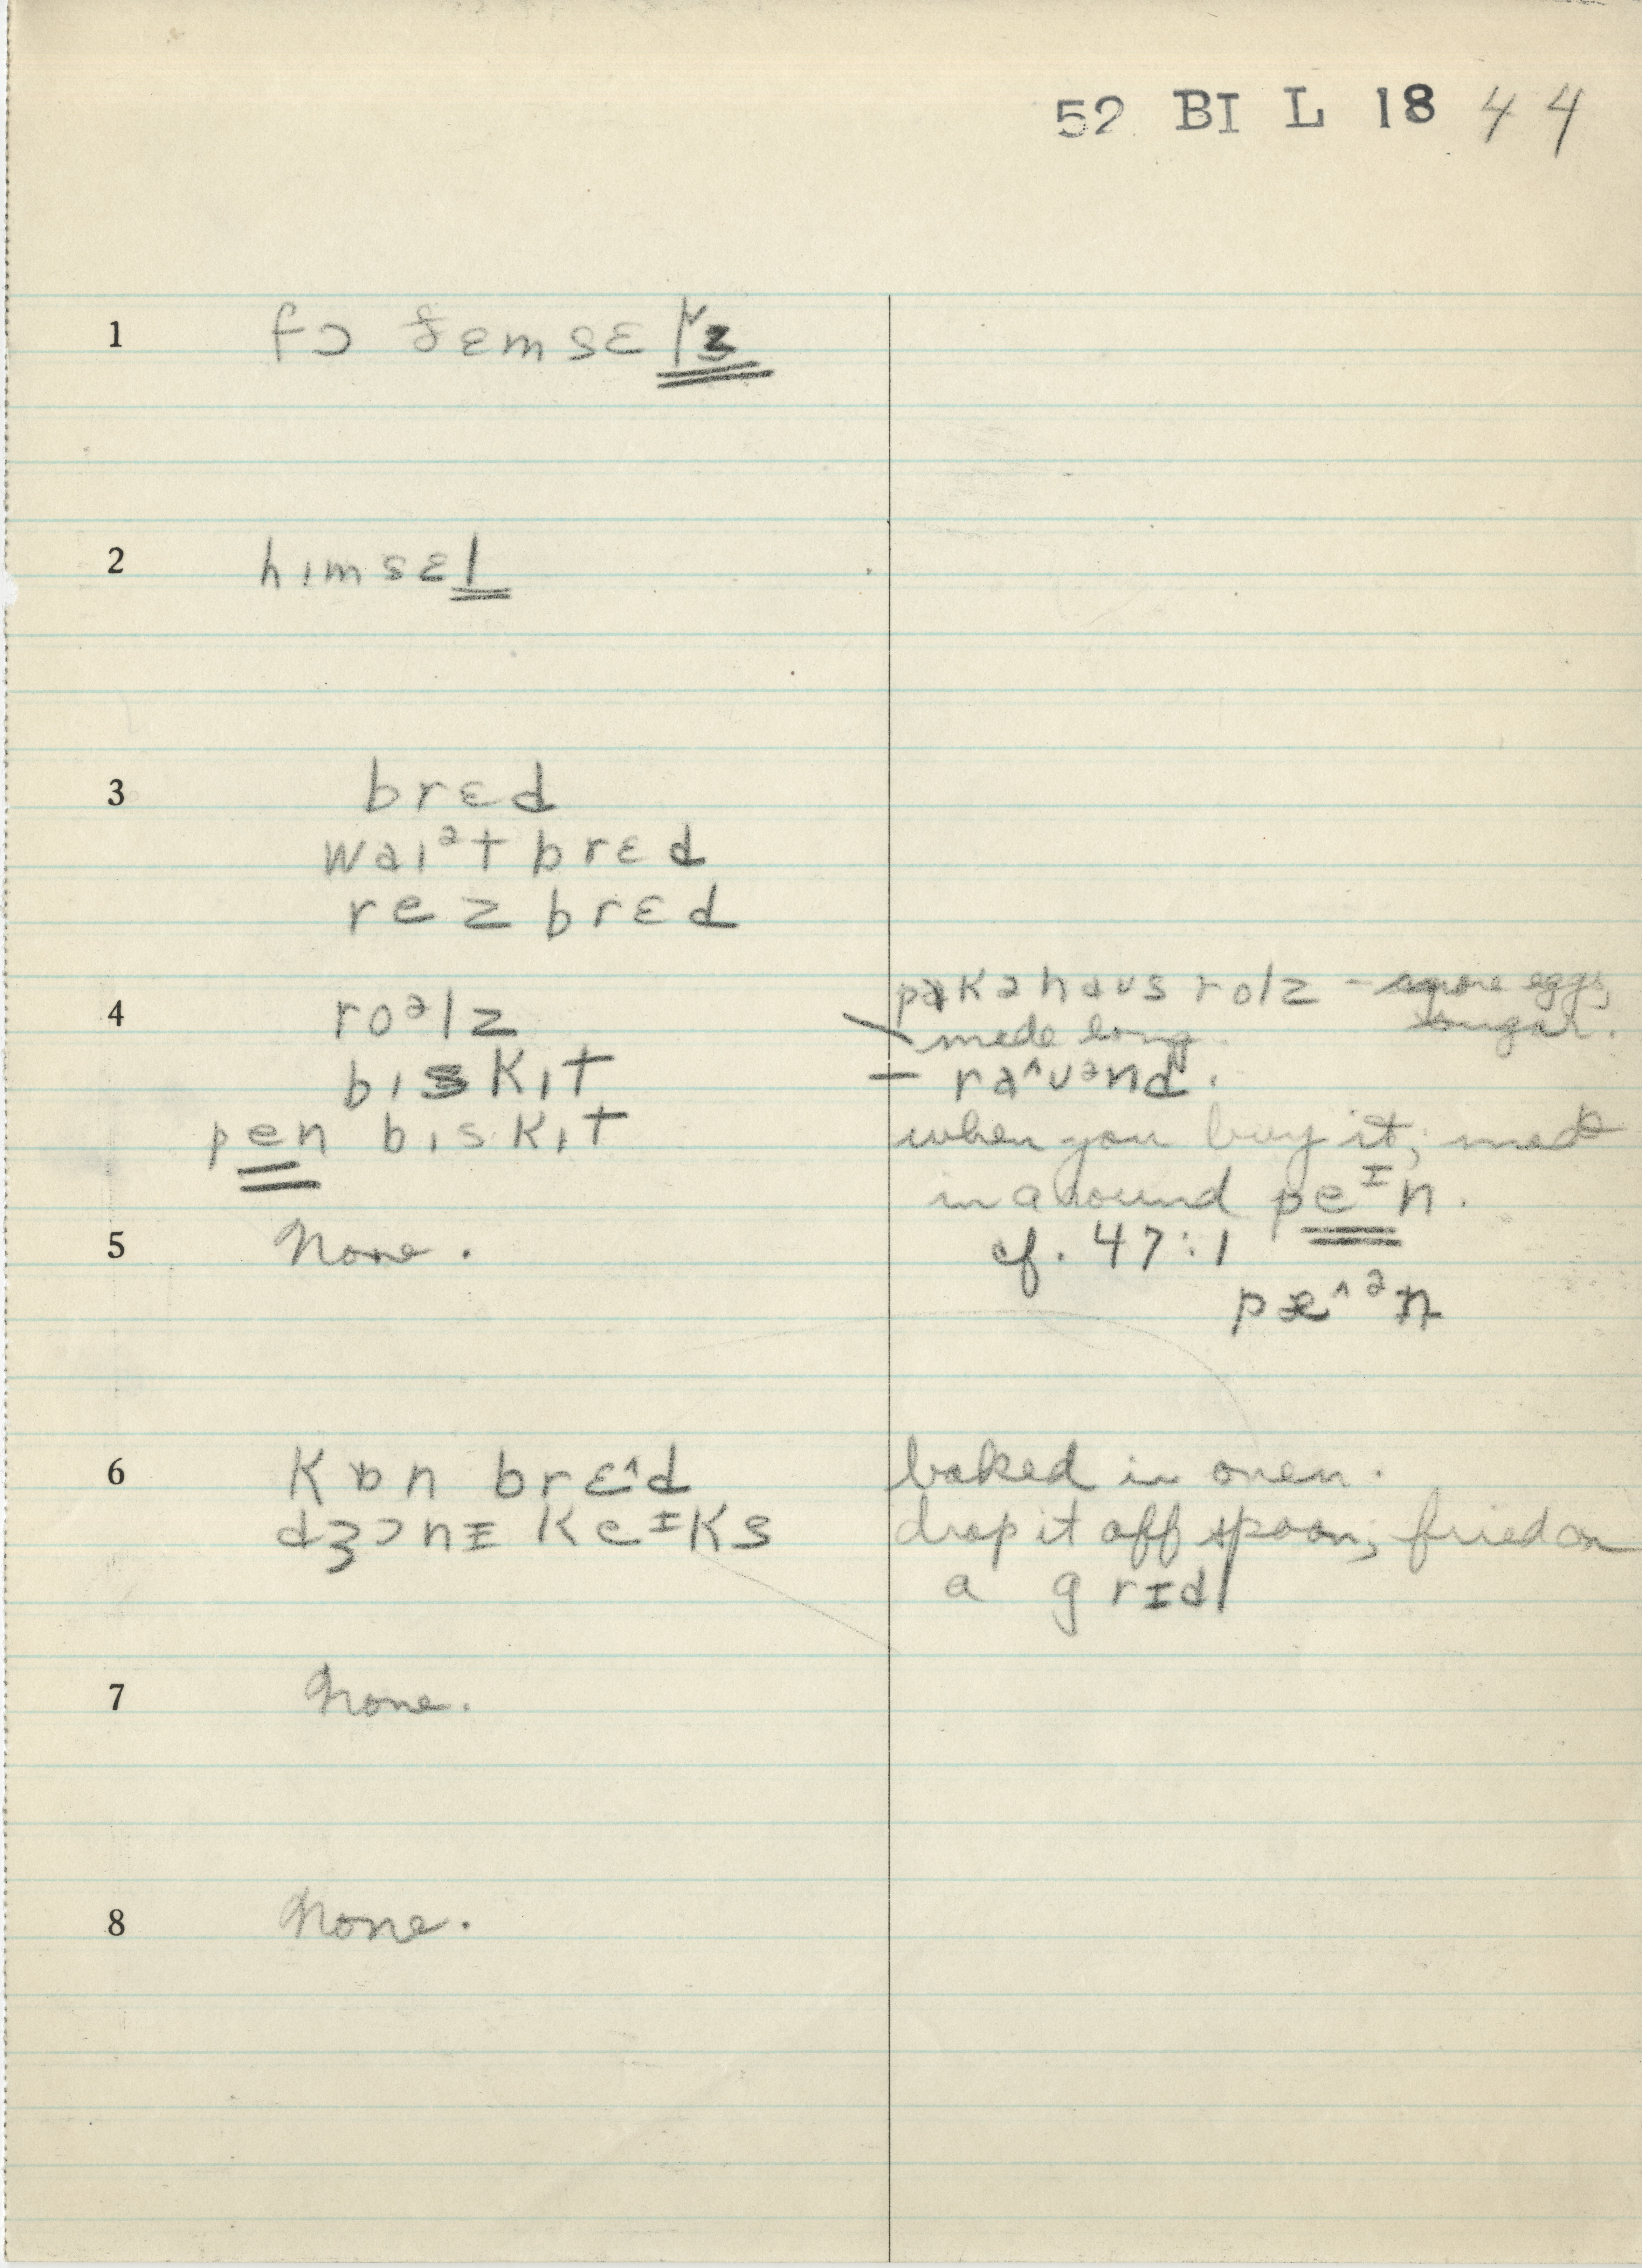 52 BI L 18 44
1 fɔ ðɛmsɛlvz
2 hɪmsɛl
3 brɛd
waɪᵊt brɛd
rez brɛd
4 roᵊlz pakəhaus rolz – more eggs,
sugar.
made long.
bɪskɪt – ra^uᵊnd.
pen bɪskɪt when you buy it; made
in a round peᴵn.
5 None. cf. 47:1
pæ^ᵊn
6 kɒn brɛ^d baked in oven.
dʒɔnɪ keᴵks drop it off spoon; fried on
a grɪdl
7 None.
8 None.